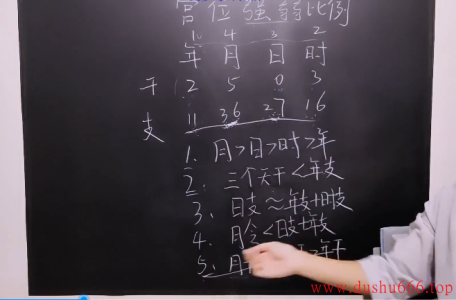 宫位强弱比例
1 4 3 2
年 月 日 时
干 2 5 0 3
支 11 36 27 16
1、月>日>时>年
2、三个天干<年支
3、日支≈年支+时支
4、月令<日支+年支
5、月 >年干
www.dushu666.top